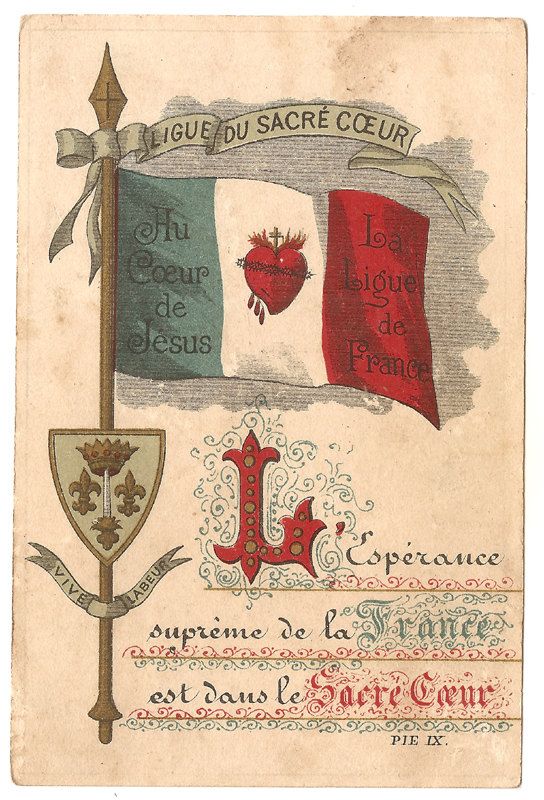 LIGUE DU SACRÉ CŒUR
Au
Cœur
de
Jésus
La
Ligue
de
France
VIVE LABEUR
L'Espérance
suprème de la France
est dans le Sacré Cœur
PIE IX.